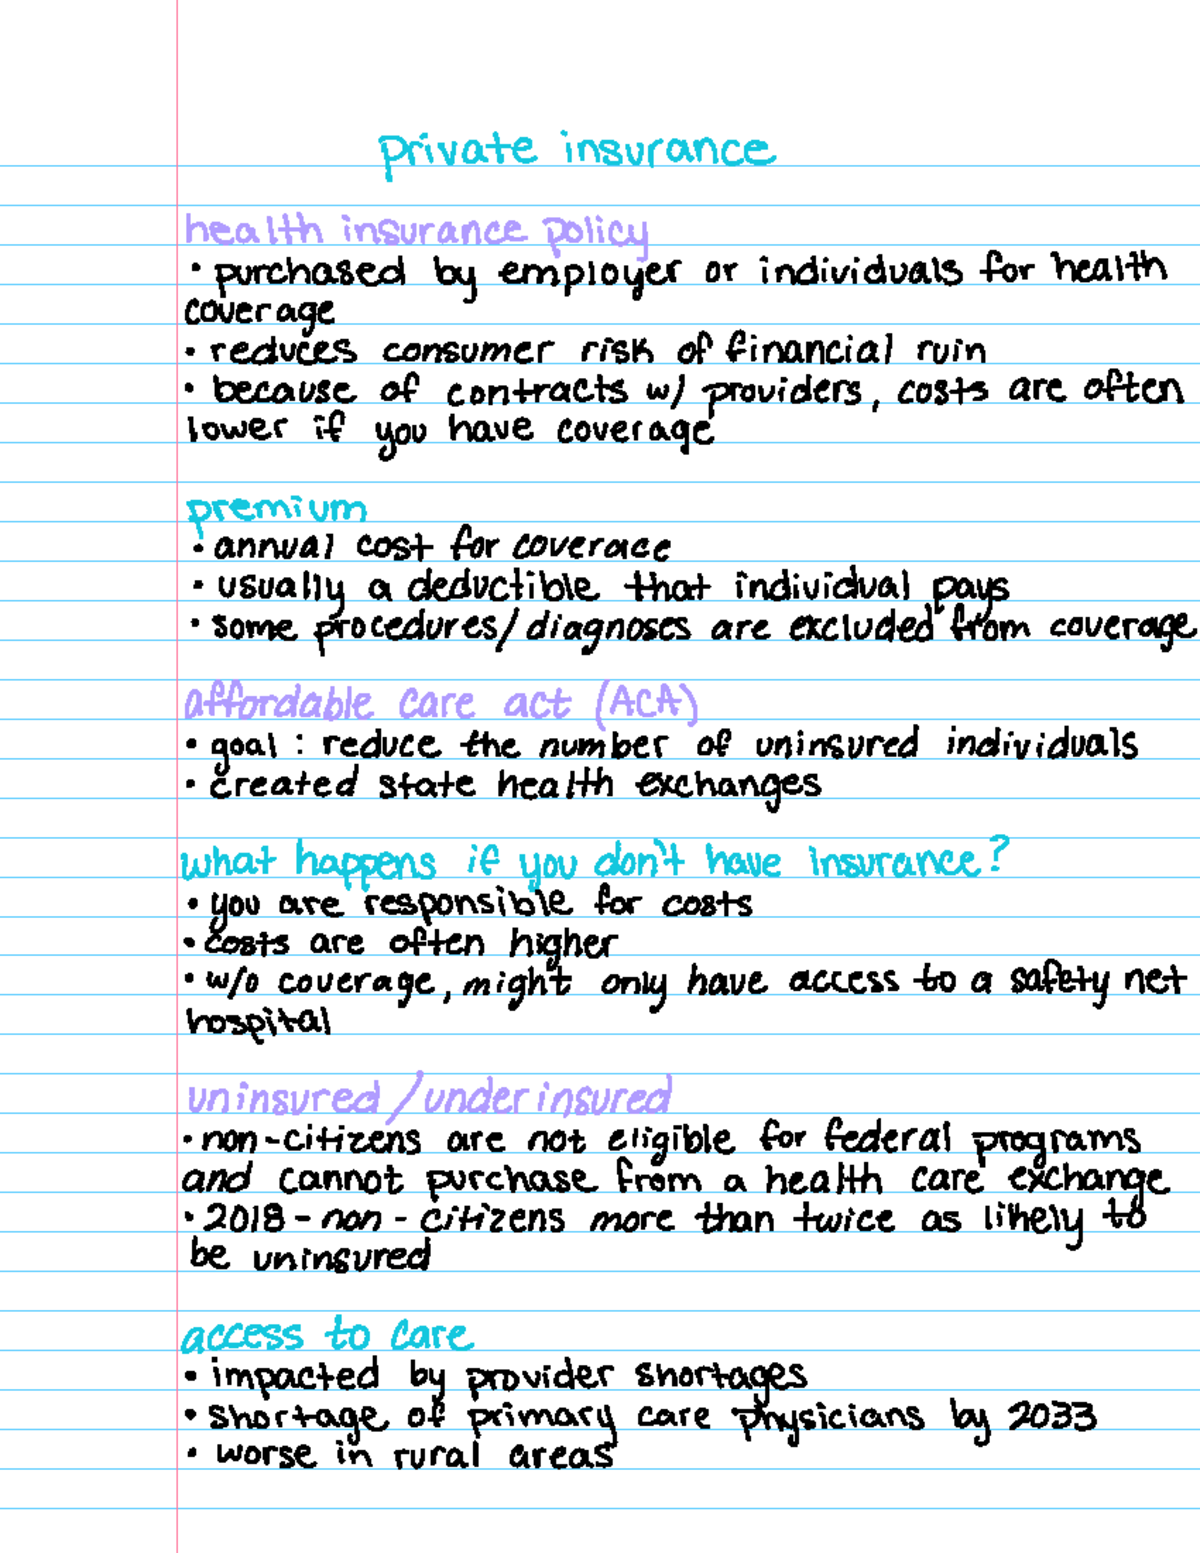 private insurance
health insurance policy
• purchased by employer or individuals for health
coverage
• reduces consumer risk of financial ruin
• because of contracts w/ providers, costs are often
lower if you have coverage
premium
• annual cost for coverace
• usually a deductible that individual pays
• some procedures/diagnoses are excluded from coverage
affordable care act (ACA)
• goal : reduce the number of uninsured individuals
• created state health exchanges
what happens if you don't have insurance?
• you are responsible for costs
• costs are often higher
• w/o coverage, might only have access to a safety net
hospital
uninsured/underinsured
• non-citizens are not eligible for federal programs
and cannot purchase from a health care exchange
• 2018 - non - citizens more than twice as likely to
be uninsured
access to care
• impacted by provider shortages
• shortage of primary care physicians by 2033
• worse in rural areas